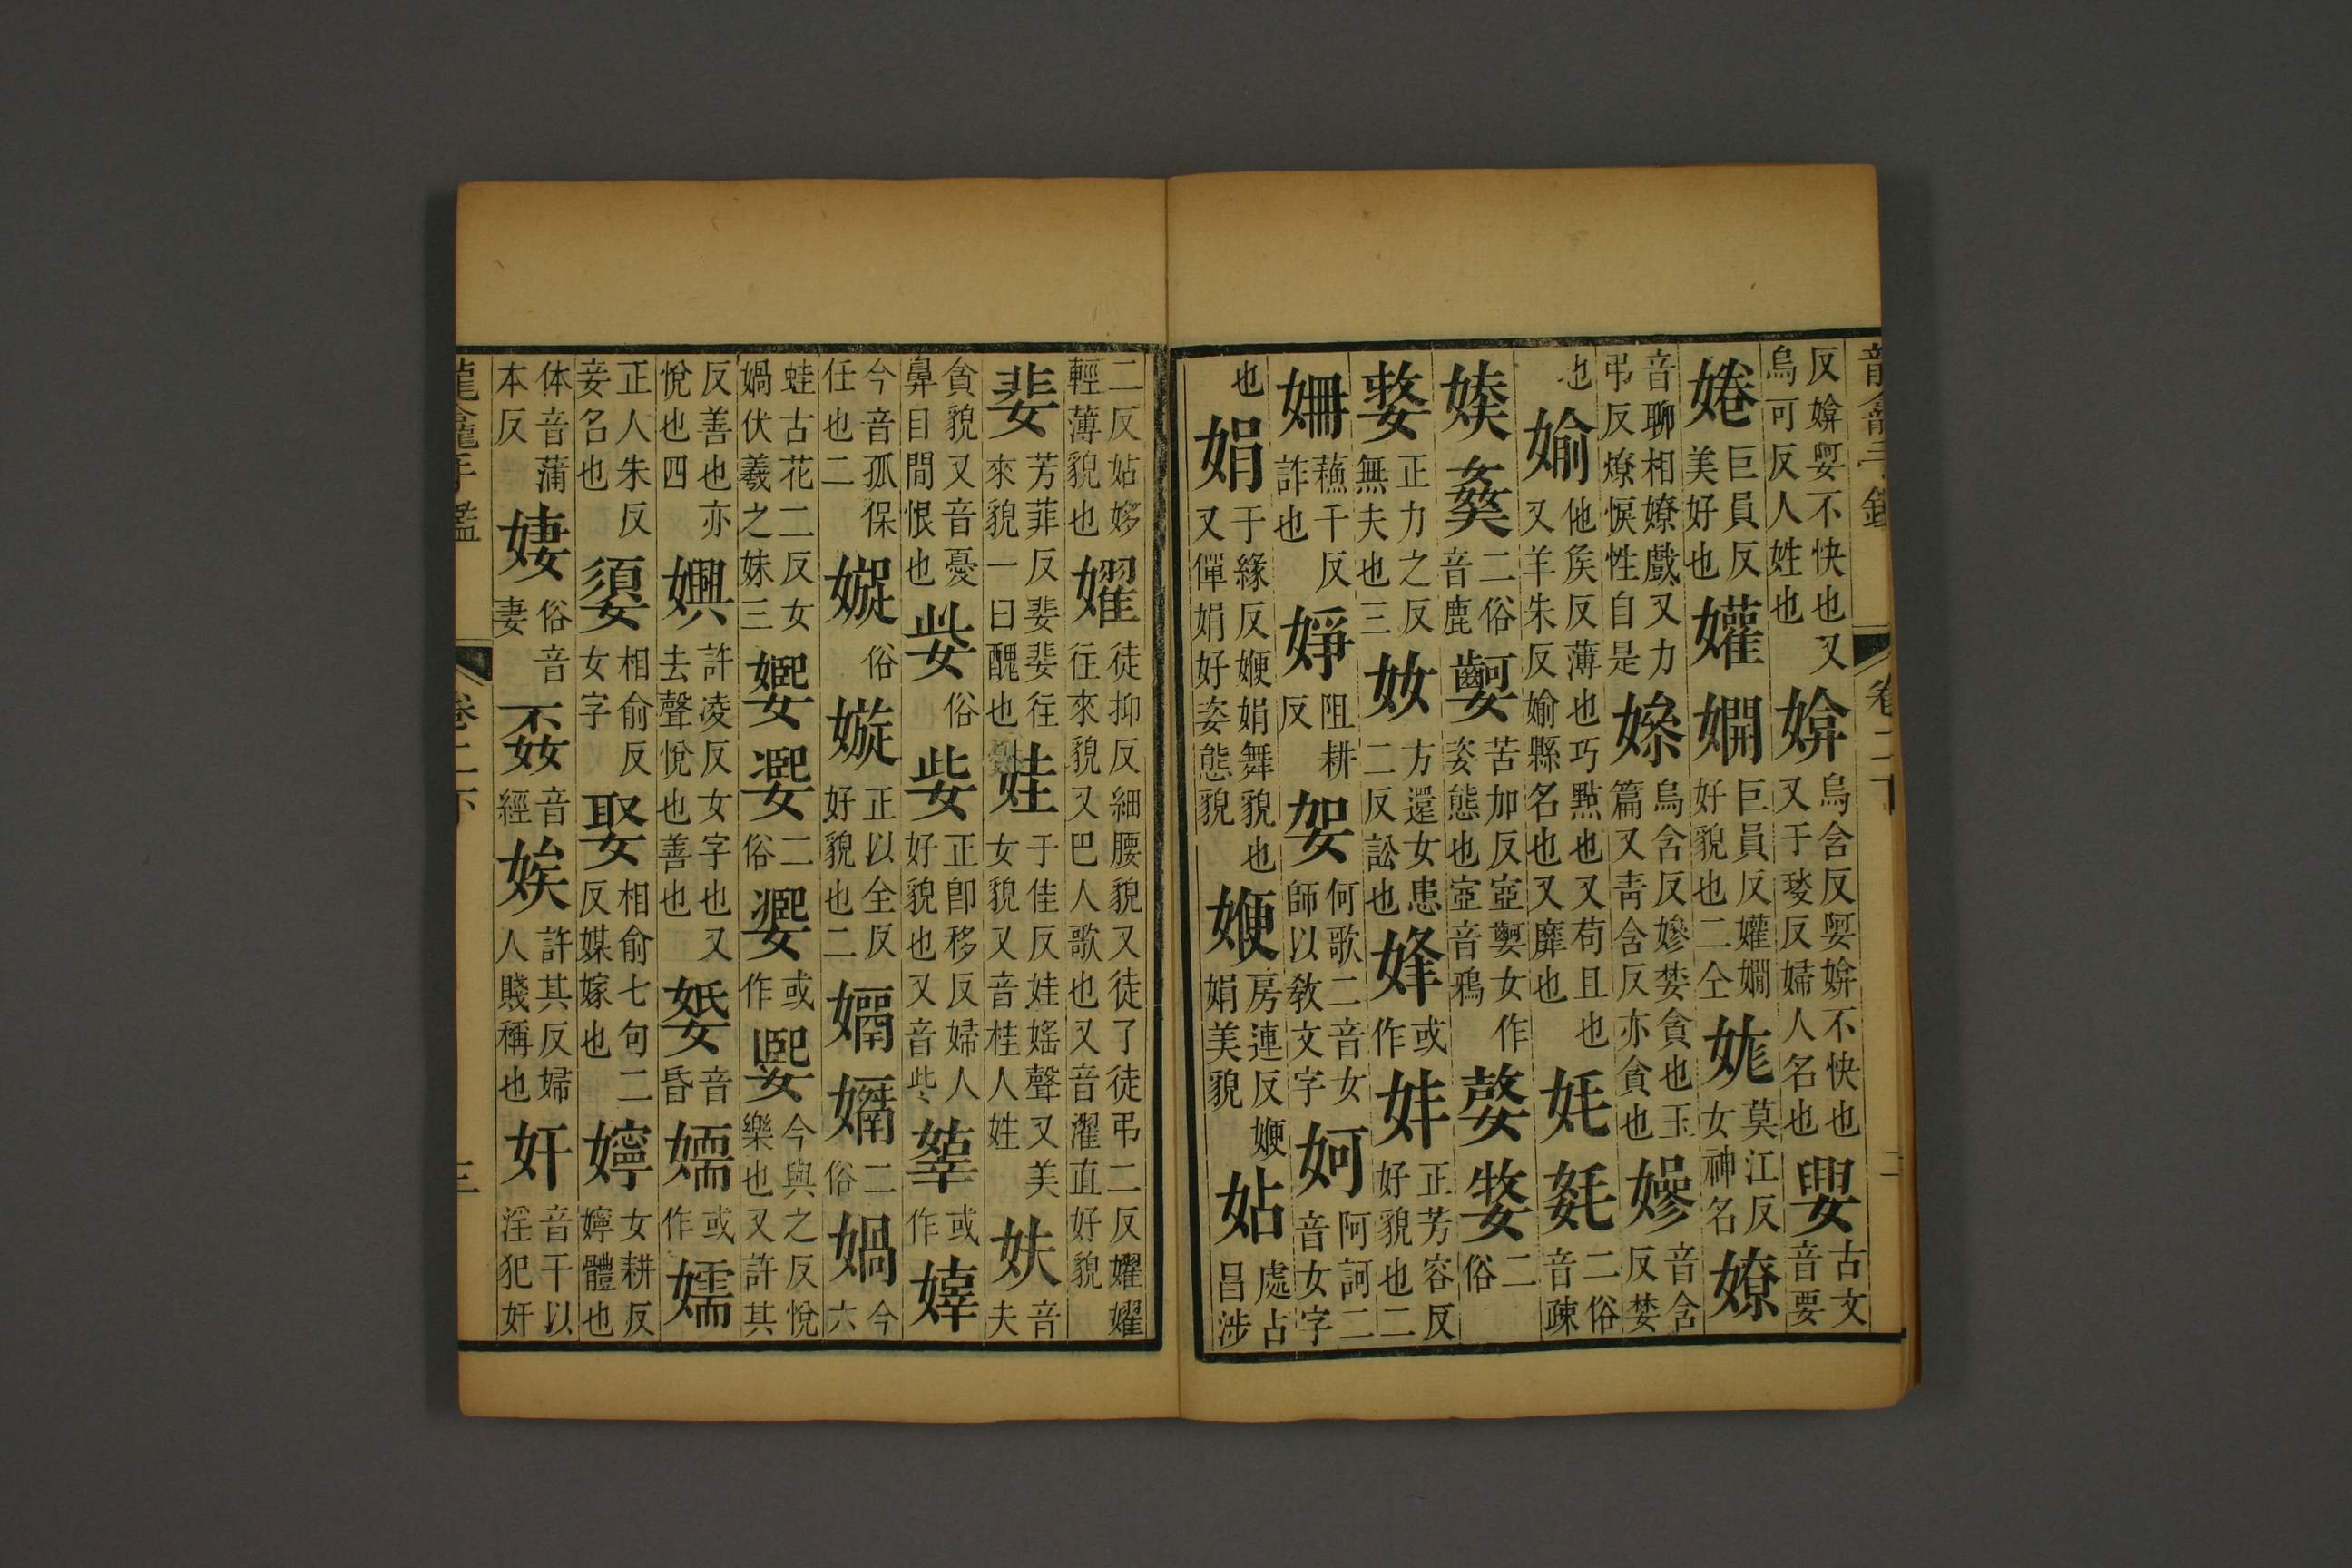 反媕娿不快也又烏可反人姓也媕烏含反娿媕不快也又于琰反婦人名也㛐古文音要
婘巨員反美好也㜬嫻巨員反㜬嫺好貌也二仝娏莫江反女神名嫽
音聊相嫽戲又力弔反燎悷性自是㛦烏含反嬸婪貪也玉篇又靑含反亦貪也嬸音含反婪
也婾他矦反薄也巧黠也又苟且也又羊朱反婾縣名也又靡也㚰㚰二俗音疎
㛤㛤二俗音鹿㜿苦加反䆘㜿女作姿態也䆘音鴉嫠㛶二俗
嫠正力之反無夫也三奻方還女患二反訟也㛔或作妦正芳容反好貌也二
姍蘓干反詐也婙阻耕反㚙何歌二音女師以敎文字妸音阿訶二女字
也娟于緣反㛹娟舞貌也又僤娟好姿態貌㛹房連反㛹娟美貌姑處占昌涉
二反姑姼輕薄貌也嬥徒抑反細腰貌又徒了徒弔二反嬥嬥徃來貌又巴人歌也又音濯直好貌
婓芳菲反婓婓徃來貌一曰醜也娃于佳反娃媱聲又美女貌又音桂人姓妋音夫
貪貌又音憂鼻目間恨也㱔俗姕正卽移反婦人好貌也又音些㜇或作嫴
今音孤保任也二㜔俗嫙正以全反好貌也二㜑㜑二俗媧今六
蛙古花二反女媧伏羲之妹三㜯㜯二俗㜯或作媐今與之反悅樂也又許其
反善也亦悅也四嬹許凌反女字也又去聲悅也善也㛰音昏嬬或作嬬
正人朱反妾名也媭相俞反女字娶相俞七句二反媒嫁也嬣女耕反嬣體也
体音蒲本反㛄俗音妻㚣音經娭許其反婦人賤稱也奸音干以淫犯奸
龍龕手鑑
卷二下
三
龍龕手鑑
卷二下
二